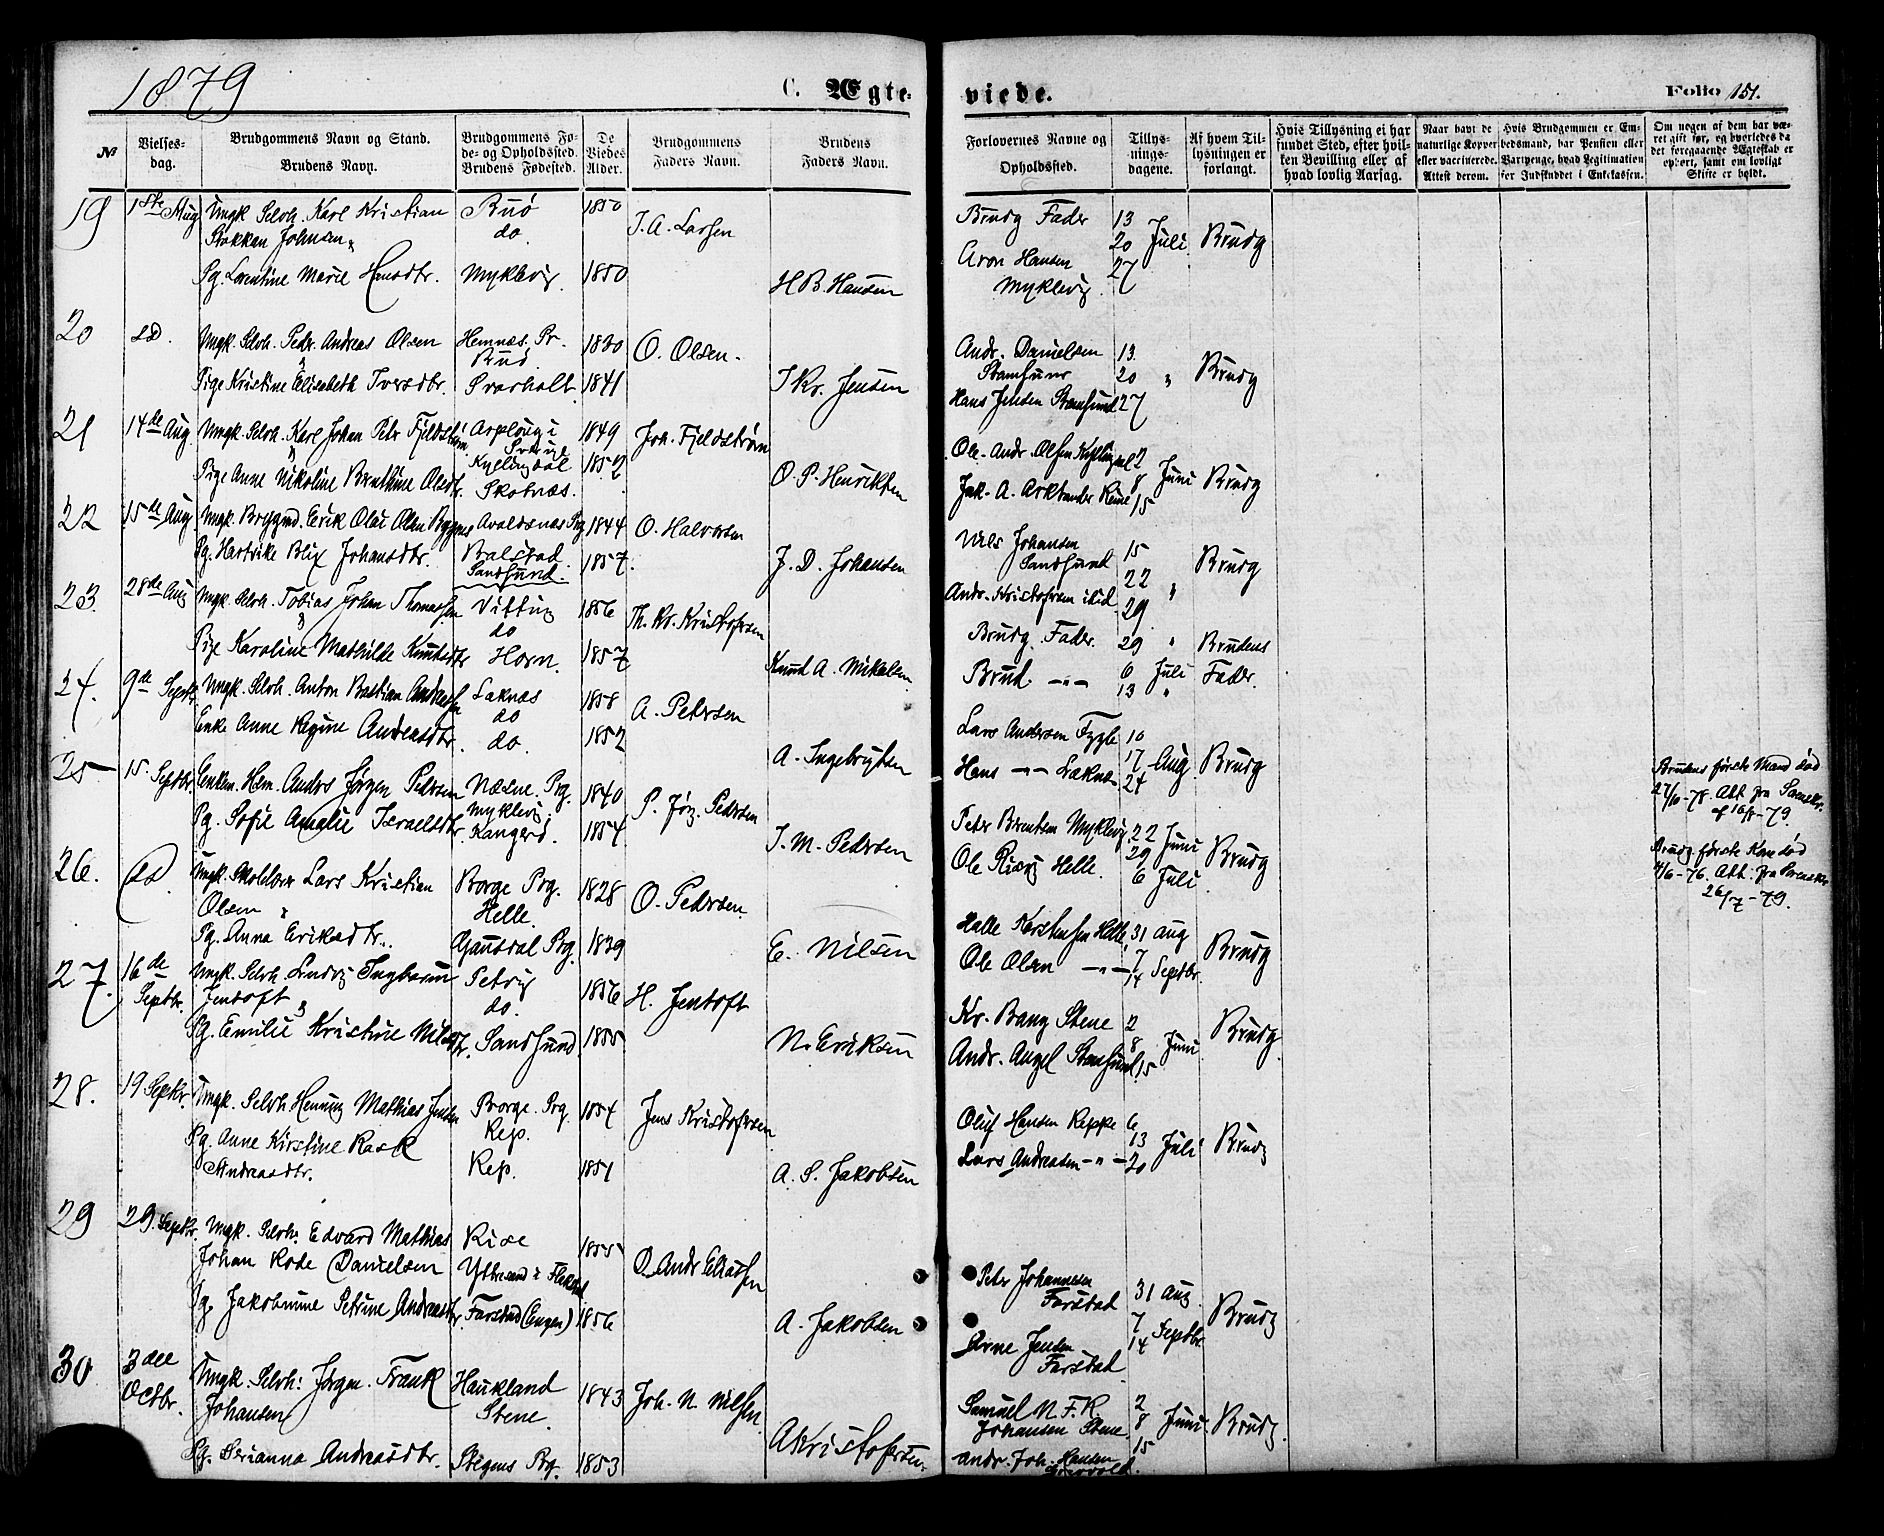 1879
C. Ægte-
viede.
Folio 151.
№
Vielses-
dag.
Brudgommens Navn og Stand.
Brudens Navn.
Brudgommens Fø-
de- og Opholdssted.
Brudens Fødested.
De
Viedes
Alder.
Brudgommens
Faders Navn.
Brudens
Faders Navn.
Forlovernes Navne og
Opholdssted.
Tillys-
nings-
dagene.
Af hvem Til-
lysningen er
forlangt.
Hvis Tillysning ei har
fundet Sted, efter hvil-
ken Bevilling eller af
hvad lovlig Aarsag.
Naar havt de
naturlige Kopper
eller vaccinerede.
Attest derom.
Hvis Brudgommen er Em-
bedsmand, har Pension eller
Vartpenge, hvad Legitimation
for Indskuddet i Enkekassen.
Om nogen af dem har væ-
ret gift før, og hvorledes da
det foregaaende Ægteskab er
ophørt, samt om lovligt
Skifte er holdt.
19 1ste Aug Ungk. Selvh. Karl Kristian 1850
Stokkan Johnsen do. J. A. Larsen
Pg. Lorentine Marie Hansdtr. Myklevig 1850
H B. Hansen
Brudg Fader 13
20 Juli Brudg
Aron Hansen 27
Myklevig
20 Ungk. Selvh. Peder Andreas Olsen Hemnæs. Pr. 1830 O. Olsen
Pige Kristine Elisabeth Iversdtr. Svarholt 1841
J Kr. Jensen
Andr. Danielsen 13
Stamsund 20 " Brudg
Hans Jensen Stamsund 27
21 14de Aug Ungk. Selvh. Karl Johan Petr Fjeldstrøm 1849 Joh. Fjeldstrøm
Pige Anne Nikoline Bernthine Olsdtr. Skotnæs.
O. P. Henriksen
Ole Andr. Olsen 2
8 Juni Brudg
Jak. A. Arktander Reine 15
22 15de Aug Ungk. Erik Olai Olsen Avaldsnæs Prg 1844 O. Halvorsen
Pg. Hartvike Blix Johansdtr. Balstad 1857
Sandsund.
J. D. Johansen
Nils Johansen 15
Sandsund 22 " Brudg
Andr. Kristofersen ibid 29
23. 28de Aug Ungk. Selvh. Tobias Johan Thomassen Vitting 1856 Th. Kr. Kristofersen
do
Pige Karoline Mathilde Knutsdtr Horn. 1857
Knud A. Mikalsen
Brudg. Fader. 29 " Brudens
Brud. -"- 6 Juli Fader.
13 "
24. 9de Septbr. Ungk. Selvh. Anton Bastian Andersen Laknæs 1858 A. Petersen
do
Enke Anne Regine Andersdtr. do. 1852
A. Ingebrigtsen
Lars Andersen Fygle 10
17 Aug Brudg
Hans -"- Læknæs 24
Brudens første Mand død
25 15. Septbr. Enkem. Anders Jørgen Pedersen Næsne Prg. 1840 P. Jørg. Pedersen
Myklevig
Pg. Sofie Amalie Israelsdtr. 1854
J. M. Pedersen
Peter Berntsen Myklevig 22 Juni
29 Brudg
Ole Helle. 6 Juli
Brudg første Kone død
26/7 - 79.
26. Ungk. Lars Kristian Borge Prg. 1828 O. Pedersen
Olsen Helle.
Pg. Anna Eriksdtr. Gausdal Prg. 1839
E. Nilsen
Halle Kerstensen Helle 31 aug
7 Brudg
Ole Olsen -"- 14 Septbr.
27. 16de Septbr. Ungk. Selvh. Ludvig Ingbarm Petvig 1856 H. Jentoft
Jentoft do.
Pg. Emilie Kristine Nilsdtr. Sandsund 1855
N. Eriksen
Kr. Bang Stene 2
8 Juni Brudg.
Andr. Angel Stamsund 15
28. 19 Septbr. Ungk. Selvh Henning Mathias Jensen Borge. Prg. 1854 Jens Kristofersen
Rep.
Pg. Anne Kirstine Rask
Andreasdtr. Rep. 1851
A. S. Jakobsen
Oluf Hansen Reppe 6
13 Juli Brudg
Lars Andreasen -"- 20
29 29. Septbr. Ungk. Selvh. Edvard Mathias Rise 1855 O. Andr Eliassen
Johan Rode Danielsen
Pg. Jakobmine Petrine Andreasdtr. Farstad (Engen) 1856
A. Jakobsen
Petr Johannesen 31 aug
Farstad 7 Brudg
Arne Jensen 14 Septbr.
Farstad
30 3die Octbr. Ungk. Selvh. Jørgen Frank Haukland 1843 Joh. N. Nilsen
Johansen Stene.
Pg. Serianna Andreasdtr. Stegens Prg. 1853
A Kristofersen.
Samuel N. F. K. 2
Johansen Stene 8 Juni. Brudg.
Andr. Joh. Hansen 15